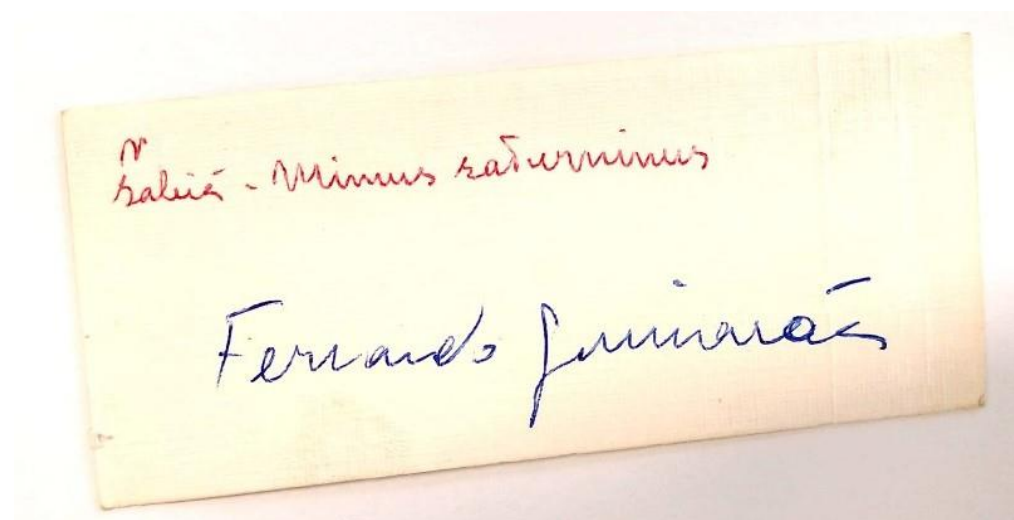 Sabiá - Mimus saturninus
Fernando Guimarães